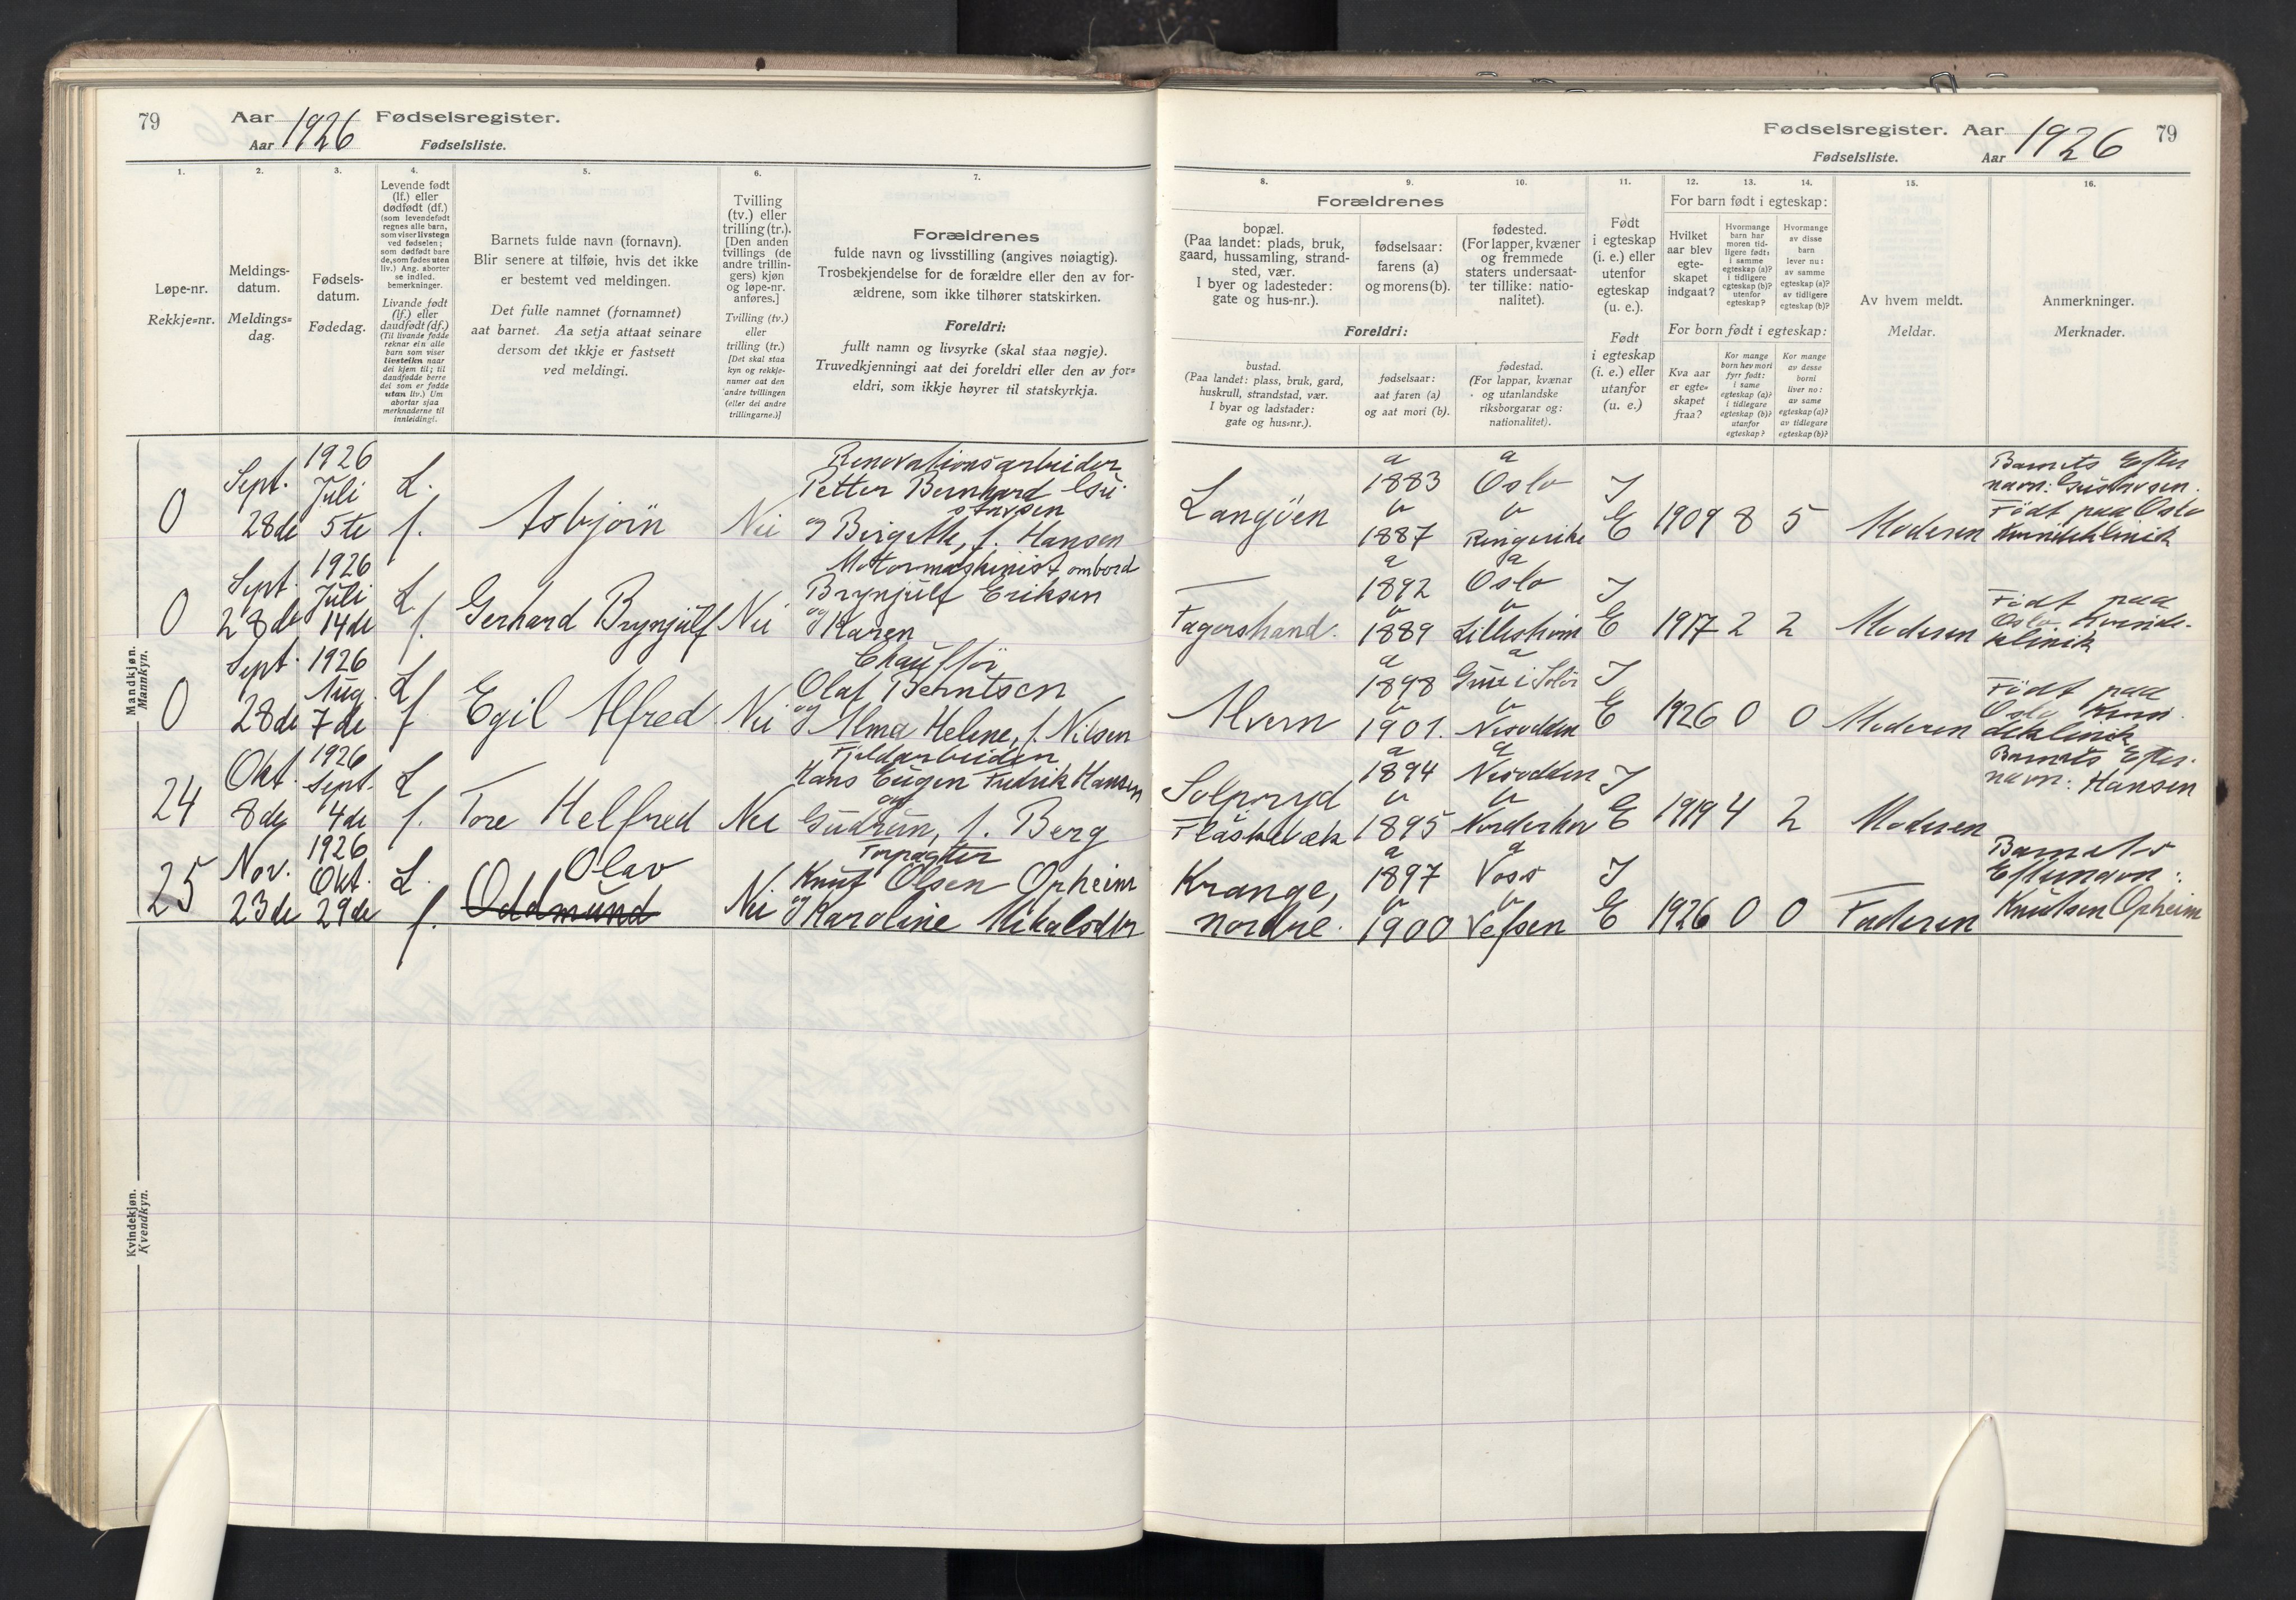 79
Aar 1926 Fødselsregister.
Aar Fødselsliste.
1. 2. 3. 4. 5. 6. 7.
Løpe-nr.
Rekkje=nr.
Meldings-
datum.
Meldings=
dag.
Fødsels-
datum.
Fødedag.
Levende født
(lf.) eller
dødfødt (df.)
(som levendefødt
regnes alle barn,
som viser livstegn
ved fødselen;
som dødfødt bare
de, som fødes uten
liv.) Ang. aborter
se indled.
bemerkninger.
Livande født
(lf.) eller
daudfødt (df.)
(Til livande fødde
reknar ein alle
barn som viser
livsteikn naar
dei kjem til; til
daudfødde berre
dei som er fødde
utan liv.) Um
abortar sjaa
merknaderne til
innleiding.
Barnets fulde navn (fornavn).
Blir senere at tilføie, hvis det ikke
er bestemt ved meldingen.
Det fulle namnet (fornamnet)
aat barnet. Aa setja attaat seinare
dersom det ikkje er fastsett
ved meldingi.
Tvilling
(tv.) eller
trilling (tr.).
[Den anden
tvillings (de
andre trillin-
gers) kjøn
og løpe-nr.
anføres.]
Tvilling (tv.)
eller
trilling (tr.)
[Det skal staa
kyn og rekkje-
numer aat den
andre tvillingen
(eller dei andre
trillingarne.)]
Forældrenes
fulde navn og livsstilling (angives nøiagtig).
Trosbekjendelse for de forældre eller den av for-
ældrene, som ikke tilhører statskirken.
Foreldri:
fullt namn og livsyrke (skal staa nøgje).
Truvedkjenningi aat dei foreldri eller den av for=
eldri, som ikkje høyrer til statskyrkja.
Mandkjøn.
Mannkyn.
0 Sept. 28de 1926 Juli 5te L. f. Asbjørn Nei
Renovationsarbeider
Petter Bernhard Gu-
stavsen
og Birgitte, f. Hansen
0 Sept. 28de 1926 Juli 14de L. f. Gerhard Brynjulf Nei
Motormaskinist ombord
Brynjulf Eriksen
og Karen
0 Sept. 28de 1926 Aug. 7de L f Egil Alfred Nei
Chauffør
Olaf Berntsen
og Alma Helene, f. Nilsen
24 Okt. 8de 1926 Sept. 4de L f. Tore Helfred Nei
Fjeldarbeider
Hans Eugen Fredrik Hansen
og
Gudrun, f. Berg
25 Nov. 23de 1926 Okt. 29de L. f. Olav
Oddmund Nei
Forpagter
Knut Olsen Opheim
og Karoline Mikalsdtr
Kvindekjøn.
Kvendkyn.
Fødselsregister. Aar 1926 79
Fødselsliste. Aar
8. 9. 10. 11. 12. 13. 14. 15. 16.
Forældrenes
bopæl.
(Paa landet: plads, bruk,
gaard, hussamling, strand-
sted, vær.
I byer og ladesteder:
gate og hus-nr.).
fødselsaar:
farens (a)
og morens (b).
fødested.
(For lapper, kvæner
og fremmede
staters undersaat-
ter tillike: natio-
nalitet).
Foreldri:
bustad.
(Paa landet: plass, bruk, gard,
huskrull, strandstad, vær.
I byar og ladstader:
gate og hus=nr.).
fødselsaar:
aat faren (a)
og aat mori (b).
fødestad.
(For lappar, kvænar
og utanlandske
riksborgarar og:
nationalitet).
Født
i egteskap
(i. e.) eller
utenfor
egteskap
(u. e.).
Født
i egteskap
(i. e.) eller
utanfor
(u. e.)
For barn født i egteskap:
Hvilket
aar blev
egte-
skapet
indgaat?
Hvormange
barn har
moren tid-
ligere født:
i samme
egteskap (a)?
i tidligere
egteskap (b)?
utenfor
egteskap?
Hvormange
av disse
barn
lever nu:
av samme
egteskap (a)?
av tidligere
egteskap (b)?
For born født i egteskap:
Kva aar
er egte=
skapet
fraa?
Kor mange
born hev mori
fyrr født:
i same
egteskap (a)?
i tidlegare
egteskap (b)?
utanfor
egteskap?
Kor mange
av desse
borni
liver no:
av same
egteskap (a)?
av tidlegare
egteskap (b)?
Av hvem meldt.
Meldar.
Anmerkninger.
Merknader.
Langøen a 1883 b 1887 a Oslo b Ringerike I E 1909 8 5 Moderen
Barnets Efter
navn: Gustavsen.
Født paa Oslo
Kvindeklinik
Fagerstrand. a 1892 b 1889 a Oslo b Lillestrøm I E 1917 2 2 Moderen
Født paa
Oslo Kvinde-
klinik
Alvern a 1898 b 1901. a Grue i Solør b Nesodden I E 1926 0 0 Moderen
Født paa
Oslo Kvin-
deklinik
Solpryd
Flaskebæk a 1894 b 1895 a Nesodden b Norderhov I E 1919 4 2 Moderen
Barnets Efter-
navn: Hansen
Krange,
nordre. a 1897 b 1900 a Voss b Vefsen I E 1926 0 0 Faderen
Barnets
Efternavn:
Knutsen Opheim